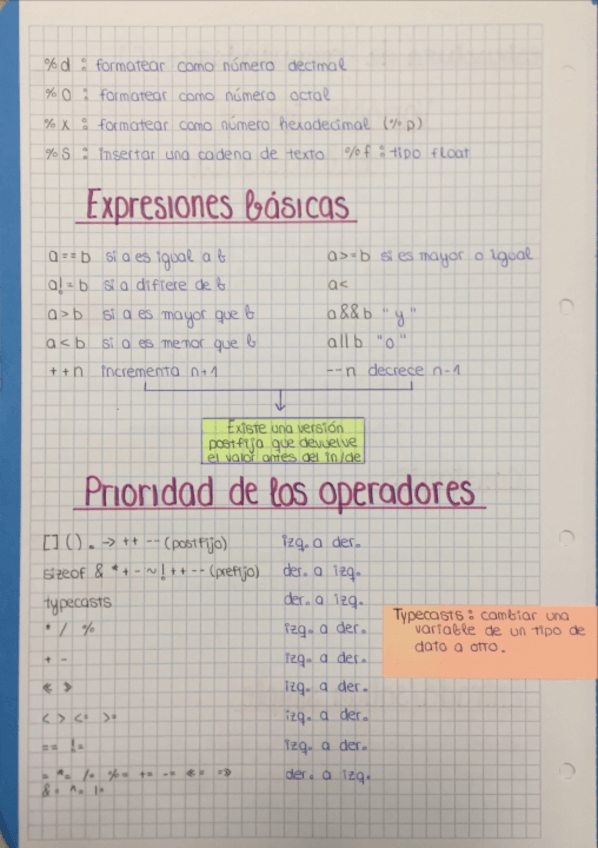 %d : formatear como número decimal
%O : formatear como número octal
%X : formatear como número hexadecimal (%p)
%S : insertar una cadena de texto %f : tipo float
Expresiones básicas
a==b si a es igual a b a>=b si es mayor o igual
a!=b si a difiere de b a<
a>b si a es mayor que b a&&b "y"
a<b si a es menor que b a||b "o"
++n incrementa n+1 --n decrece n-1
Existe una versión
postfija que devuelve
el valor antes del in/de
Prioridad de los operadores
[] () . -> ++ -- (postfijo) izq. a der.
sizeof & * + - ~ ! ++ -- (prefijo) der. a izq.
typecasts der. a izq.
* / % izq. a der.
Typecasts : cambiar una
variable de un tipo de
dato a otro.
+ - izq. a der.
<< >> izq. a der.
< > <= >= izq. a der.
== != izq. a der.
= *= /= %= += -= <<= =>> der. a izq.
&= ^= |=